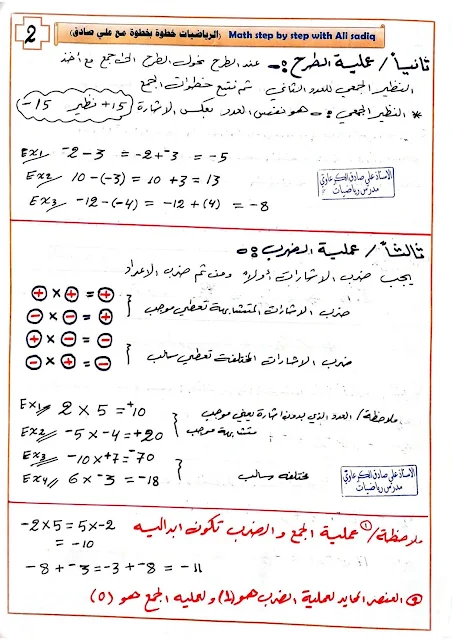 2
(الرياضيات خطوة بخطوة مع علي صادق) Math step by step with Ali sadiq
ثانياً / عملية الطرح :- عند الطرح نحول الطرح الى جمع مع أخذ
النظير الجمعي للعدد الثاني ثم نتبع خطوات الجمع
* النظير الجمعي :- هو نفس العدد بعكس الاشارة (+15 نظير -15)
Ex1// -2-3 = -2+-3 = -5
Ex2// 10-(-3) = 10+3 = 13
Ex3// -12-(-4) = -12+(4) = -8
الاستاذ علي صادق الكرعاوي
مدرس رياضيات
ثالثاً / عملية الضرب :-
يجب ضرب الاشارات أولاً ومن ثم ضرب الاعداد
+ × + = +
- × - = +
ضرب الاشارات المتشابهة تعطي موجب
+ × - = -
- × + = -
ضرب الاشارات المختلفة تعطي سالب
Ex1// 2 × 5 = +10
Ex2// -5 × -4 = +20
ملاحظة / العدد الذي بدون اشارة يعني موجب
متشابهة موجب
Ex3// -10 × +7 = -70
Ex4// 6 × -3 = -18
مختلفه سالب
الاستاذ علي صادق الكرعاوي
مدرس رياضيات
ملاحظة / ① عملية الجمع و الضرب تكون ابدالية
-2×5 = 5×-2
= -10
-8 + -3 = -3 + -8 = -11
② العنصر المحايد لعملية الضرب هو (1) ولعملية الجمع هو (0)